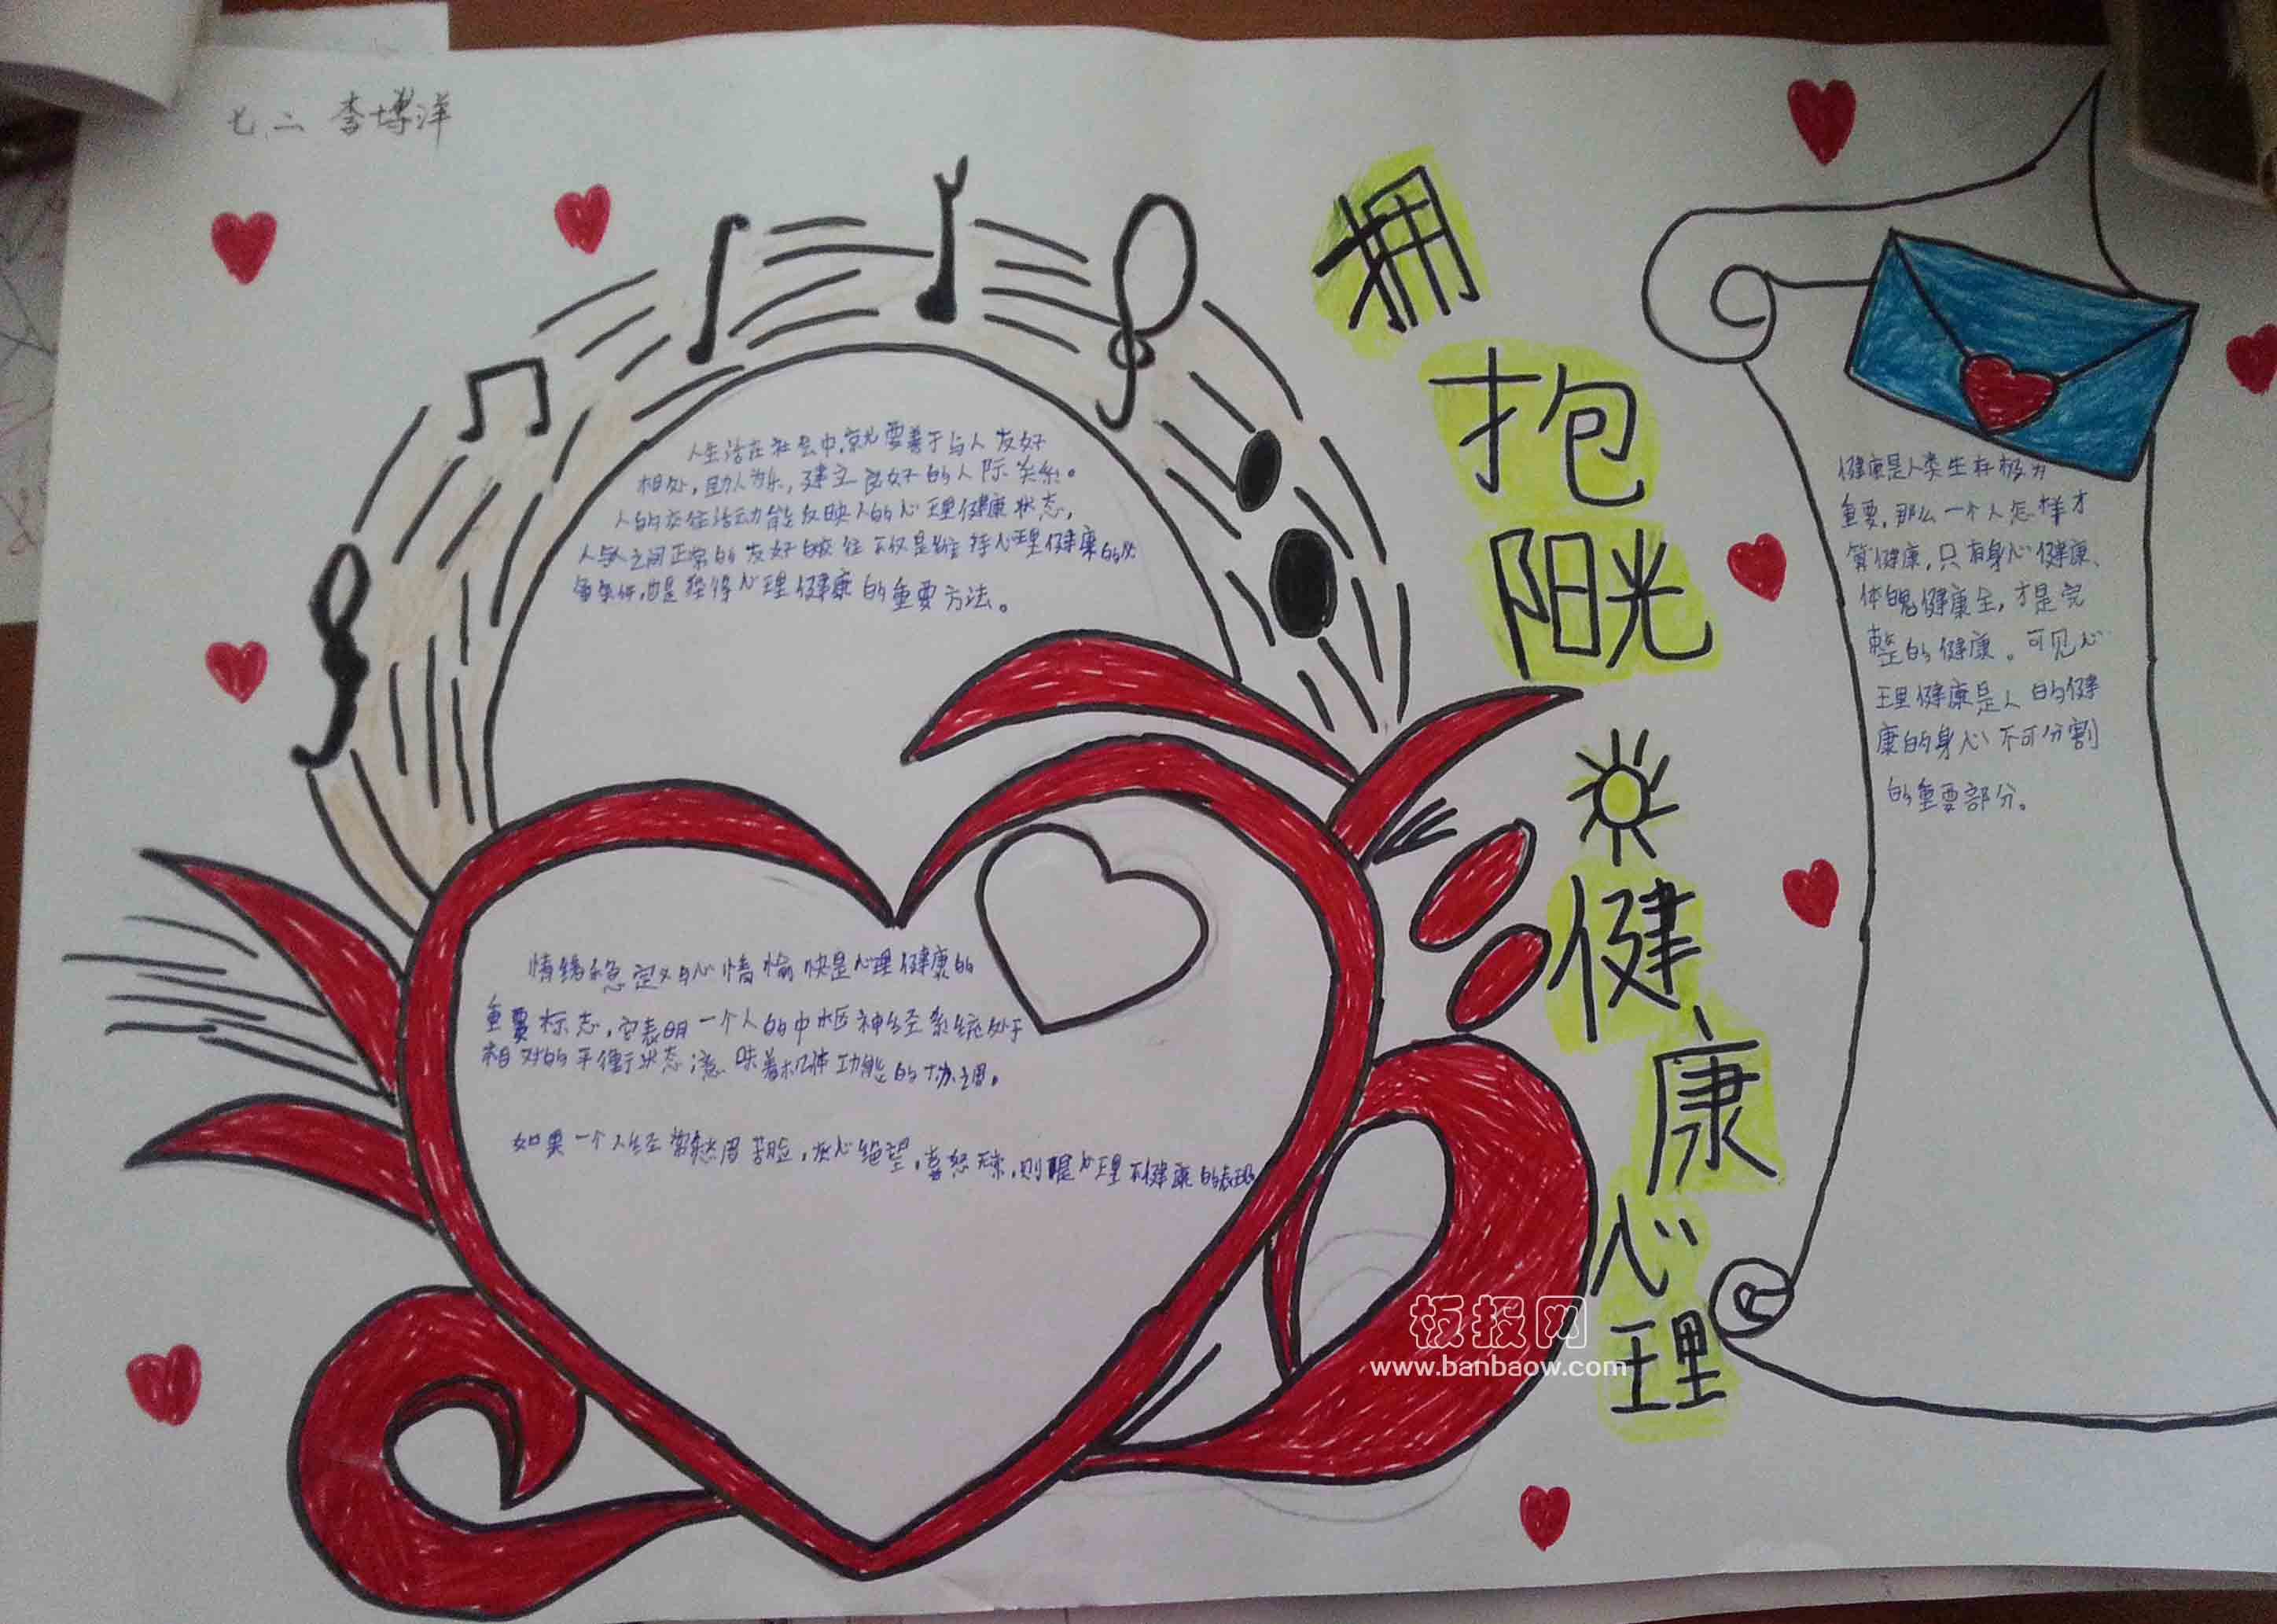 七、二 李博洋
拥
抱
阳光
健
康
心
理
人生活在社会中,就要善于与人友好
相处,助人为乐,建立良好的人际关系。
人的交往活动能反映人的心理健康状态,
人与人之间正常的友好的交往不仅是维持心理健康的必
备条件,也是获得心理健康的重要方法。
情绪稳定与心情愉快是心理健康的
重要标志,它表明一个人的中枢神经系统处于
相对的平衡状态,意味着机体功能的协调。
如果一个人经常愁眉苦脸,灰心绝望,喜怒无常,则是心理不健康的表现
健康是人类生存极为
重要,那么一个人怎样才
算健康,只有身心健康、
体魄健康全,才是完
整的健康。可见心
理健康是人的健
康的身心不可分割
的重要部分。
板报网
www.banbaow.com